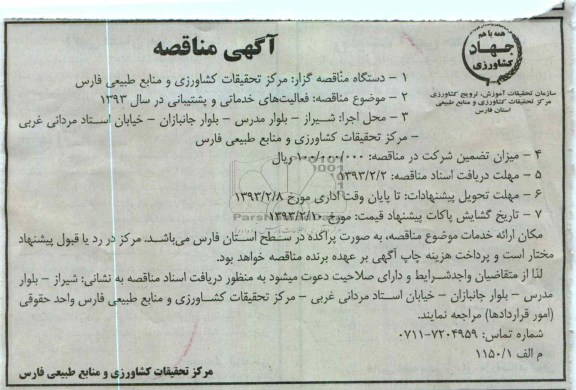 همه با هم
جهاد
کشاورزی
سازمان تحقیقات آموزش، ترویج کشاورزی
مرکز تحقیقات کشاورزی و منابع طبیعی
استان فارس
آگهی مناقصه
۱ – دستگاه مناقصه گزار: مرکز تحقیقات کشاورزی و منابع طبیعی فارس
۲ – موضوع مناقصه: فعالیت‌های خدماتی و پشتیبانی در سال ۱۳۹۳
۳ – محل اجرا: شیراز – بلوار مدرس – بلوار جانبازان – خیابان استاد مردانی غربی
– مرکز تحقیقات کشاورزی و منابع طبیعی فارس
۴ – میزان تضمین شرکت در مناقصه: ۱۰۰/۰۰۰/۰۰۰ ریال
۵ – مهلت دریافت اسناد مناقصه: ۱۳۹۳/۲/۲
۶ – مهلت تحویل پیشنهادات: تا پایان وقت اداری مورخ ۱۳۹۳/۲/۸
۷ – تاریخ گشایش پاکات پیشنهاد قیمت: مورخ ۱۳۹۳/۲/۱۰
مکان ارائه خدمات موضوع مناقصه، به صورت پراکنده در سطح استان فارس می‌باشد. مرکز در رد یا قبول پیشنهاد
مختار است و پرداخت هزینه چاپ آگهی بر عهده برنده مناقصه خواهد بود.
لذا از متقاضیان واجدشرایط و دارای صلاحیت دعوت میشود به منظور دریافت اسناد مناقصه به نشانی: شیراز – بلوار
مدرس – بلوار جانبازان – خیابان استاد مردانی غربی – مرکز تحقیقات کشاورزی و منابع طبیعی فارس واحد حقوقی
(امور قراردادها) مراجعه نمایند.
شماره تماس: ۷۲۰۴۹۵۹-۰۷۱۱
م الف ۱۱۵۰/۱
مرکز تحقیقات کشاورزی و منابع طبیعی فارس